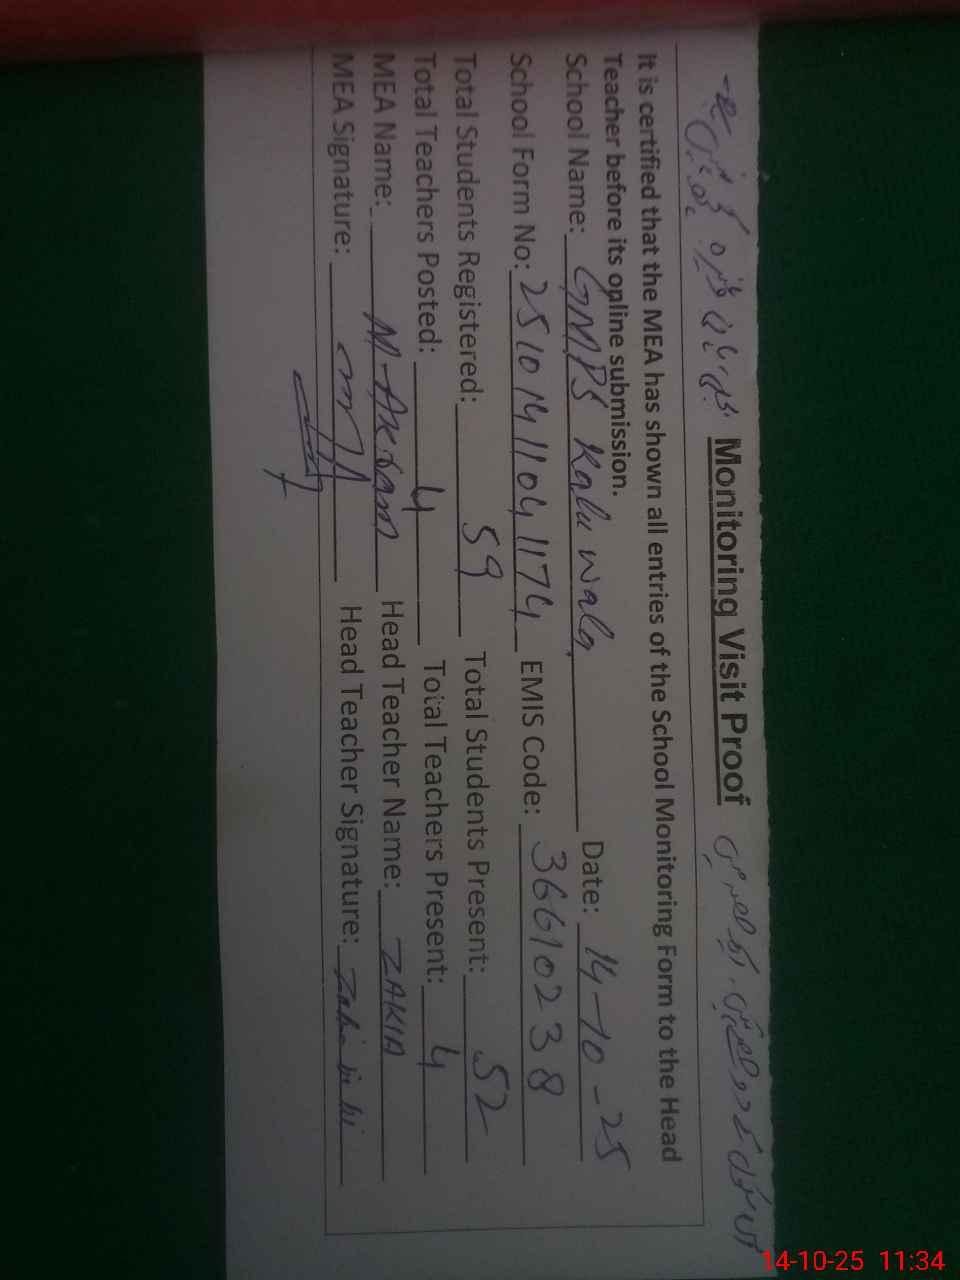 Monitoring Visit Proof
It is certified that the MEA has shown all entries of the School Monitoring Form to the Head
Teacher before its online submission.
School Name: GMPS Kalu wala Date: 14-10-25
School Form No: 251014110411174 EMIS Code: 36610238
Total Students Registered: 59 Total Students Present: 52
Total Teachers Posted: 4 Total Teachers Present: 4
MEA Name: M-Akram Head Teacher Name: ZAKIA
MEA Signature: Head Teacher Signature: Zakia bi bi
14-10-25 11:34